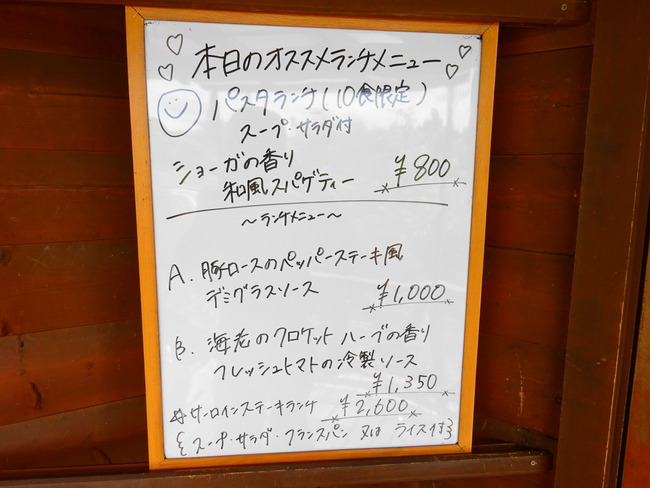 本日のオススメランチメニュー
パスタランチ(10食限定)
スープ・サラダ付
ショーガの香り
和風スパゲティー ¥800
〜ランチメニュー〜
A. 豚ロースのペッパーステーキ風
デミグラスソース ¥1,000
B. 海老のクロケット ハーブの香り
フレッシュトマトの冷製ソース
¥1,350
サーロインステーキランチ ¥2,600
{スープ・サラダ・フランスパン 又は ライス付}